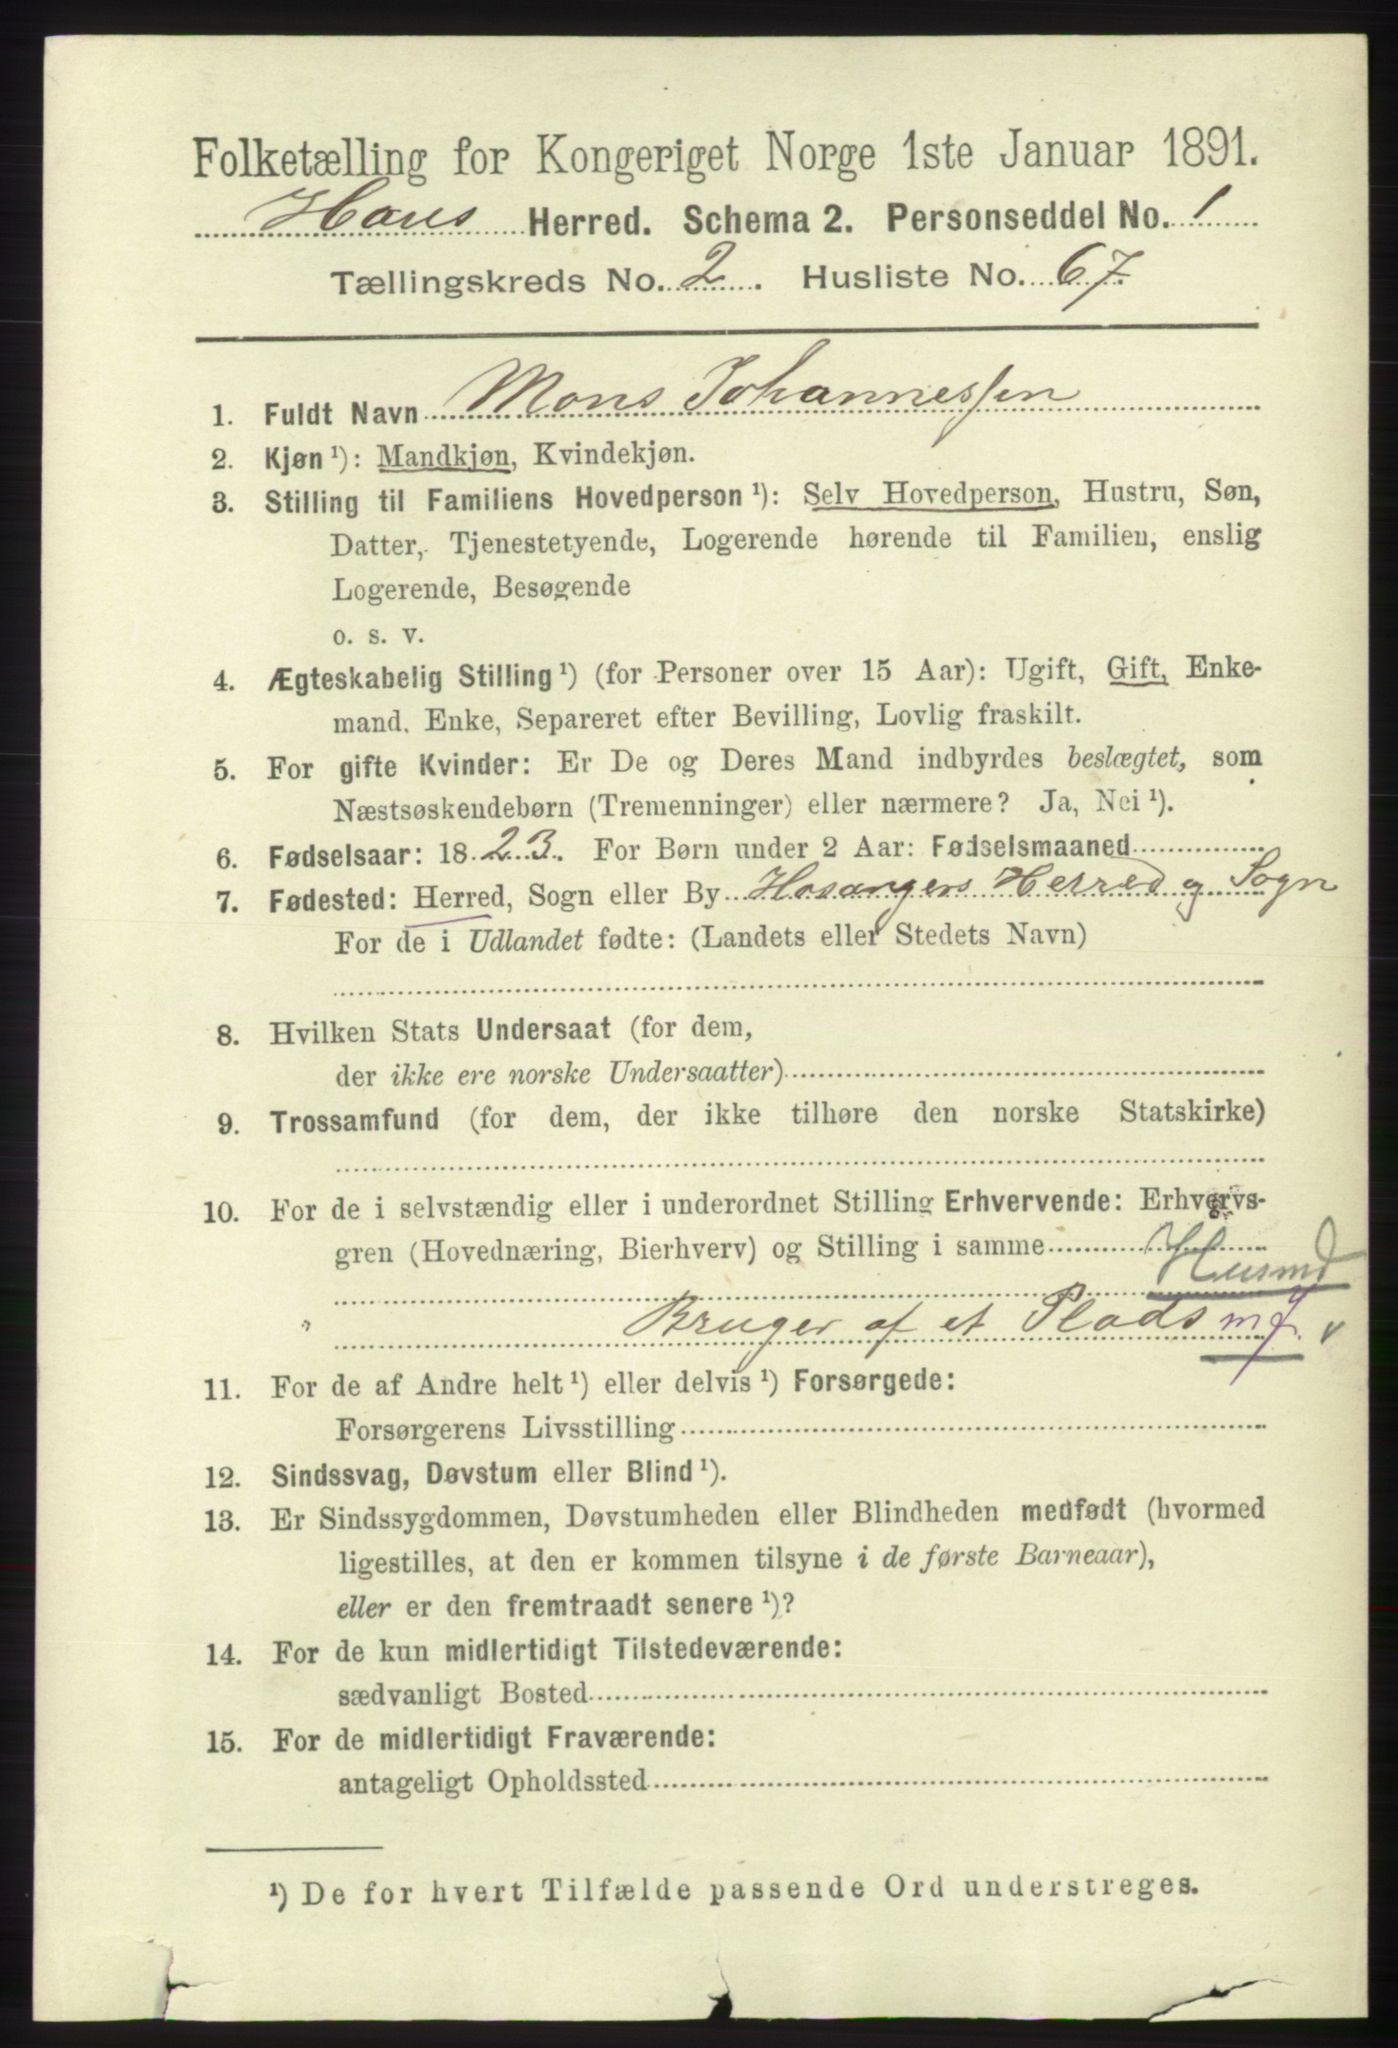 Folketælling for Kongeriget Norge 1ste Januar 1891.
Haus Herred. Schema 2. Personseddel No. 1
Tællingskreds No. 2. Husliste No. 67.
1. Fuldt Navn Mons Johannessen
2. Kjøn ¹): Mandkjøn, Kvindekjøn.
3. Stilling til Familiens Hovedperson ¹): Selv Hovedperson, Hustru, Søn,
Datter, Tjenestetyende, Logerende hørende til Familien, enslig
Logerende, Besøgende
o. s. v.
4. Ægteskabelig Stilling ¹) (for Personer over 15 Aar): Ugift, Gift, Enke-
mand, Enke, Separeret efter Bevilling, Lovlig fraskilt.
5. For gifte Kvinder: Er De og Deres Mand indbyrdes beslægtet, som
Næstsøskendebørn (Tremenninger) eller nærmere? Ja, Nei ¹).
6. Fødselsaar: 1823. For Børn under 2 Aar: Fødselsmaaned
7. Fødested: Herred, Sogn eller By Hosangers Herred og Sogn
For de i Udlandet fødte: (Landets eller Stedets Navn)
8. Hvilken Stats Undersaat (for dem,
der ikke ere norske Undersaatter)
9. Trossamfund (for dem, der ikke tilhøre den norske Statskirke)
10. For de i selvstændig eller i underordnet Stilling Erhvervende: Erhvervs-
gren (Hovednæring, Bierhverv) og Stilling i samme
Husmd
Bruger af et Plads m J.
11. For de af Andre helt ¹) eller delvis ¹) Forsørgede:
Forsørgerens Livsstilling
12. Sindssvag, Døvstum eller Blind ¹).
13. Er Sindssygdommen, Døvstumheden eller Blindheden medfødt (hvormed
ligestilles, at den er kommen tilsyne i de første Barneaar),
eller er den fremtraadt senere ¹)?
14. For de kun midlertidigt Tilstedeværende:
sædvanligt Bosted
15. For de midlertidigt Fraværende:
antageligt Opholdssted
¹) De for hvert Tilfælde passende Ord understreges.